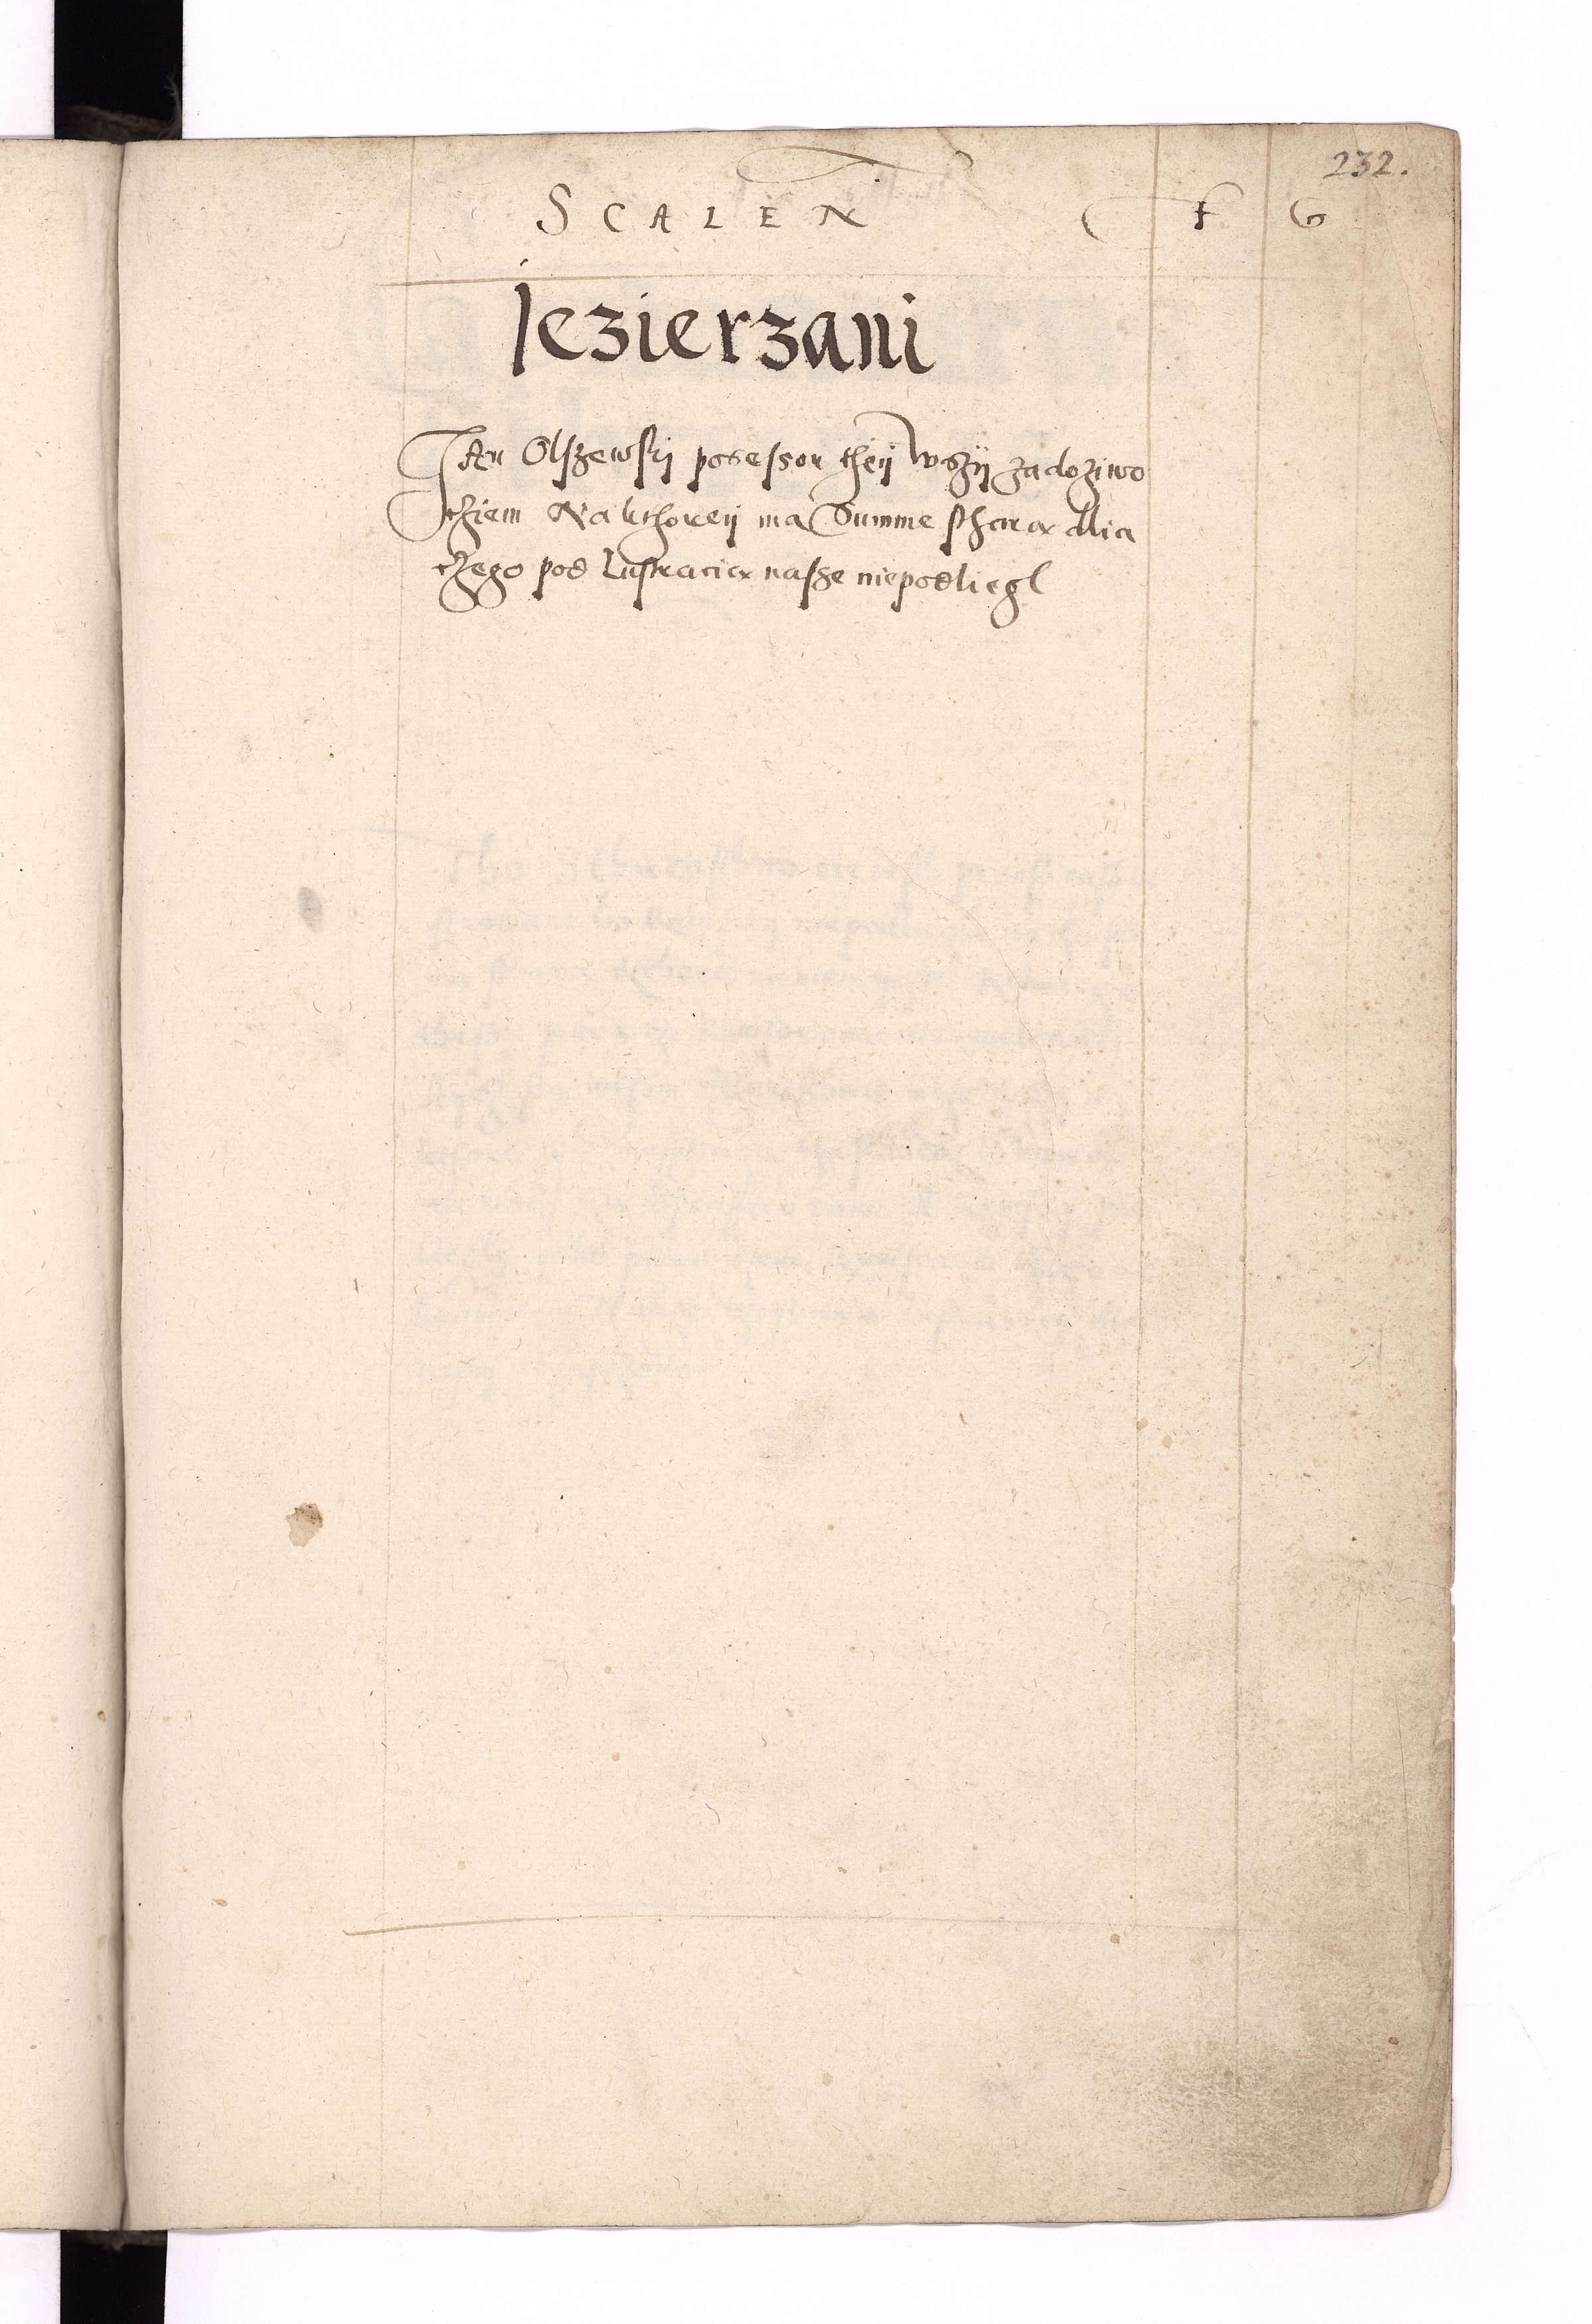 232.
SCALEN F G
Jezierzani
Jan Olszewskj posessor theÿ wsÿÿ za doziwo
thziem Na kthoreÿ ma Summe sthara dlia
czego pod Lustracia nasze niepodliegl